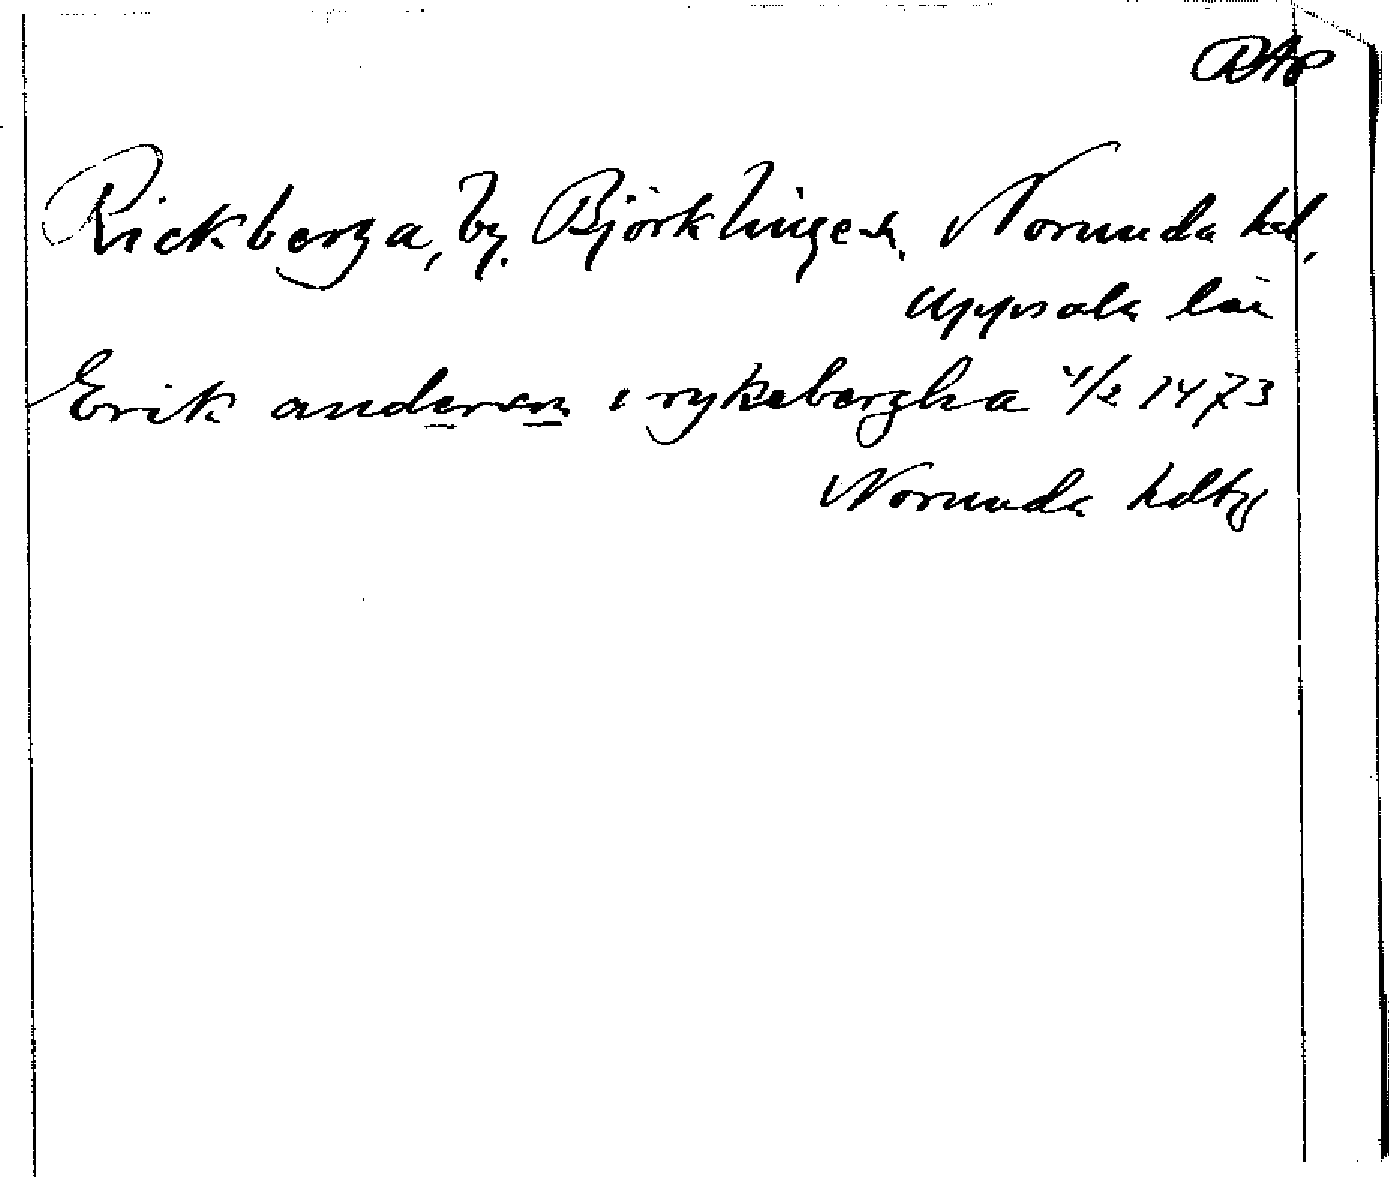 RAp
Rickberga, by. Björklinge sn. Norunda hd,
Uppsala län
Erik anderson i rykebergha 4/2 1473
Norunda hdbg